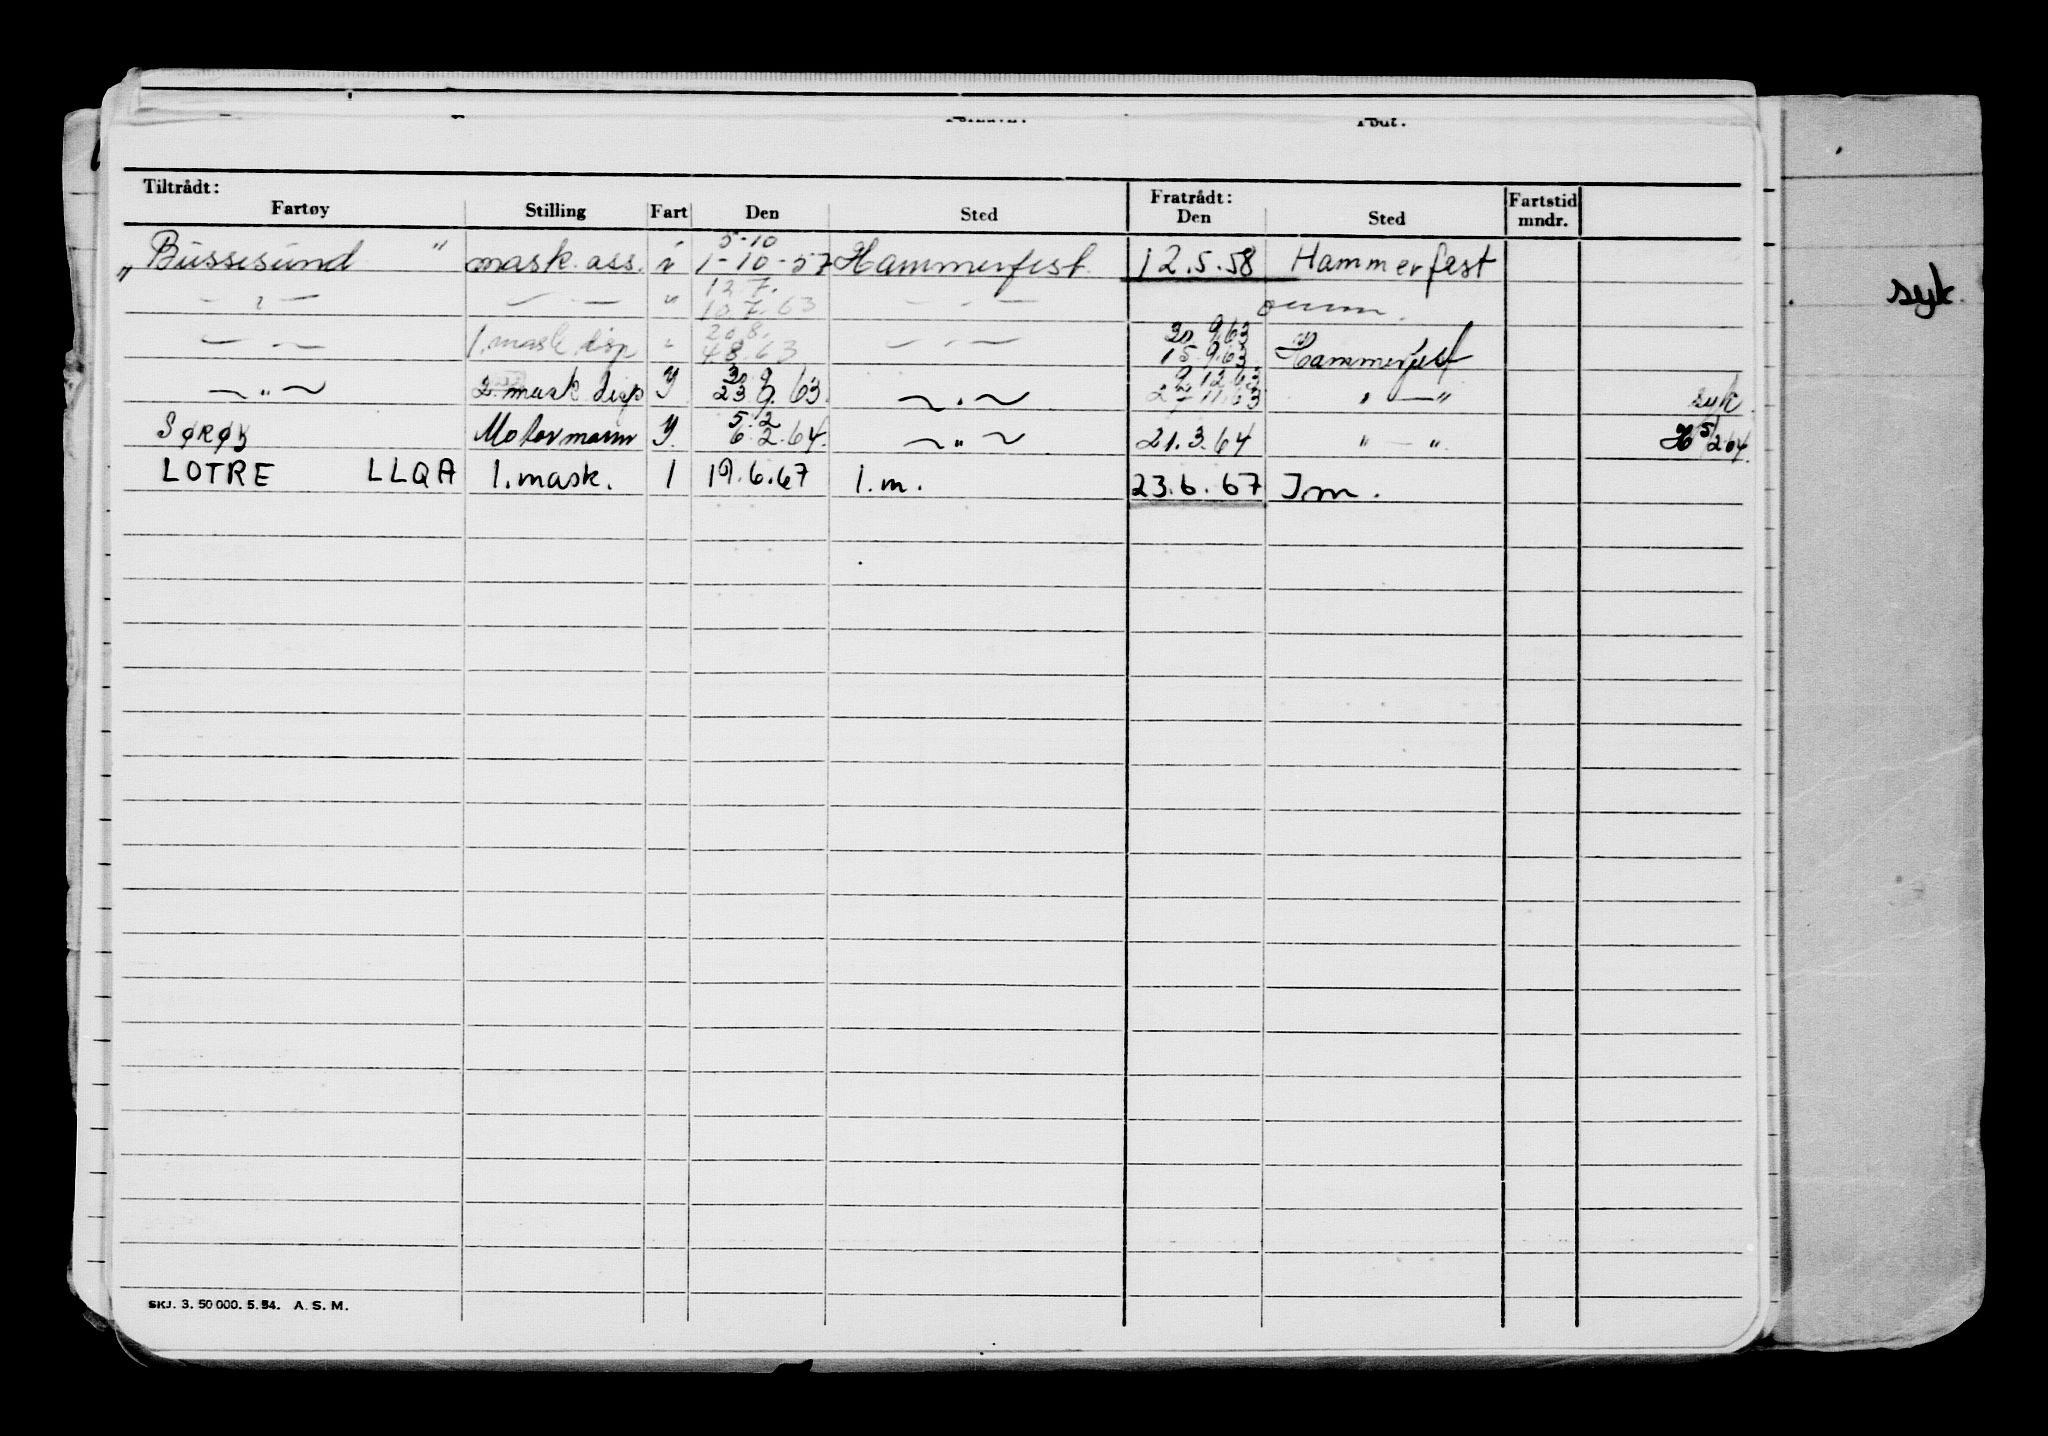 Tiltrådt: Fratrådt:
Fartøy Stilling Fart Den Sted Den Sted Fartstid mndr.
5-10
„Bussesund" mask. ass. i 1-10-57 Hammerfest 12.5.58 Hammerfest
syk.
12.7.
— " — — — " 10.7.63 — " — omm.
20.8. 30.9.63
— " — 1. mask. disp " 4.8.63 — " — 15.9.63 Hammerfest
30.9. 9.12.63
— " — 2. mask disp Y 23.9.63 — " — 27.11.63 " — " syk.
5.2
SØRØY Motormann Y. 6.2.64. — " — 21.3.64 " — " H 5/2 64.
LOTRE LLQA 1. mask. 1 19.6.67 1.m. 23.6.67 Im.
SKJ. 3. 50 000. 5. 54. A. S. M.